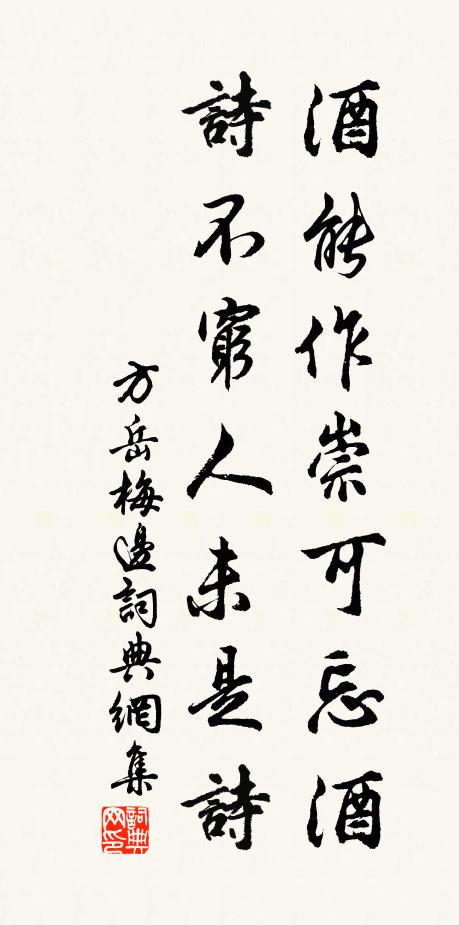 酒能作祟可忘酒
詩不窮人未是詩
方岳梅邊詞典網集
詞典网印